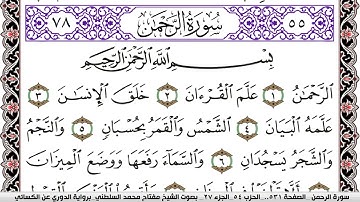 ٥٥ سُورَةُ الرَّحْمَٰن ٧٨
بِسْمِ اللَّهِ الرَّحْمَٰنِ الرَّحِيمِ
الرَّحْمَٰنُ ١ عَلَّمَ الْقُرْءَانَ ٢ خَلَقَ الْإِنسَٰنَ ٣
عَلَّمَهُ الْبَيَانَ ٤ الشَّمْسُ وَالْقَمَرُ بِحُسْبَانٍ ٥ وَالنَّجْمُ
وَالشَّجَرُ يَسْجُدَانِ ٦ وَالسَّمَآءَ رَفَعَهَا وَوَضَعَ الْمِيزَانَ
سورة الرحمن الصفحة ٥٣١.. الحزب ٥٤ الجزء ٢٧ بصوت الشيخ مفتاح محمد السلطني برواية الدوري عن الكسائي